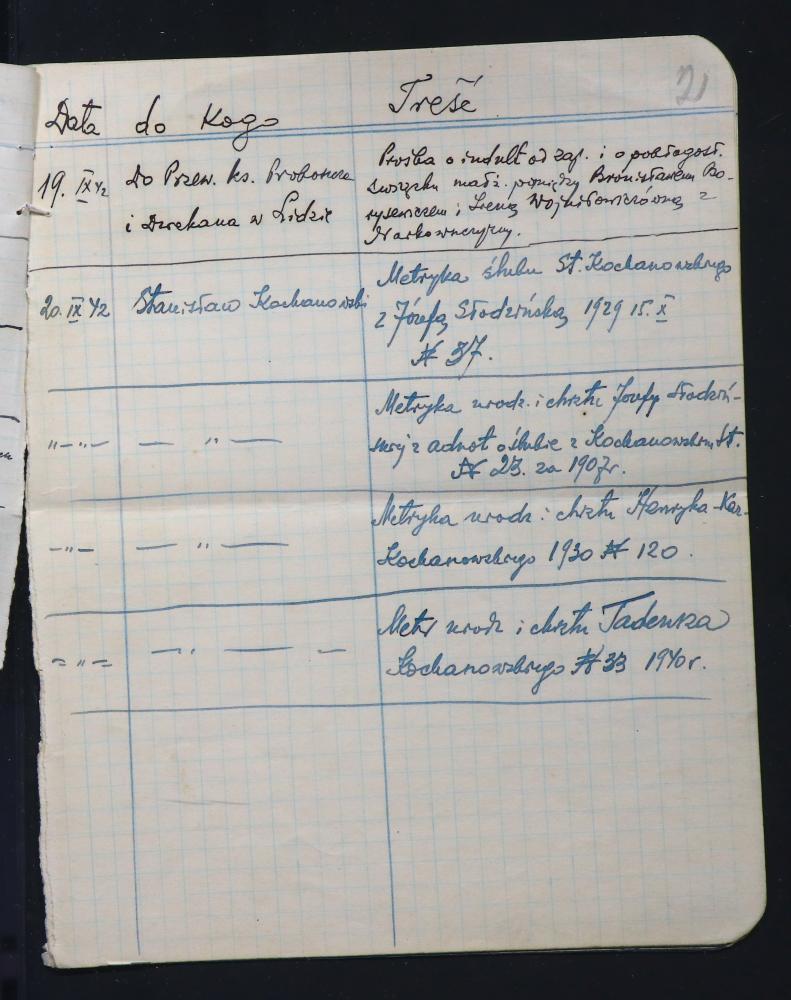 21
Data do Kogo Treść
19. IX 42 Do Przew. ks. Proboszcza
i Dziekana w Lidzie
Prośba o indult od zap. i o pobłogosł.
związku małż. pomiędzy Bronisławem Bo-
rysewiczem i Ireną Wojniłowiczówną z
20. IX 42 Stanisław Kochanowski
Metryka ślubu St. Kochanowskiego
z Józefą Słodzińską 1929 15. X
№ 37.
"-"-" — " —
Metryka urodz. i chrztu Józefy Słodziń-
skiej z adnot o ślubie z Kochanowskim St.
№ 23. za 1907r.
-"- — " —
Metryka urodz. i chrztu Henryka-Kaz-
Kochanowskiego 1930 № 120.
= " = — " — —
Metr urodz i chrztu Tadeusza
Kochanowskiego № 33 1940r.